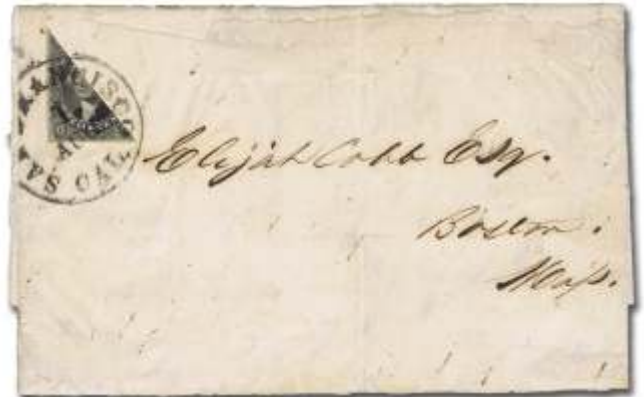 SAN FRANCISCO CAL.
Elijah Cobb Esq.
Boston.
Mass.